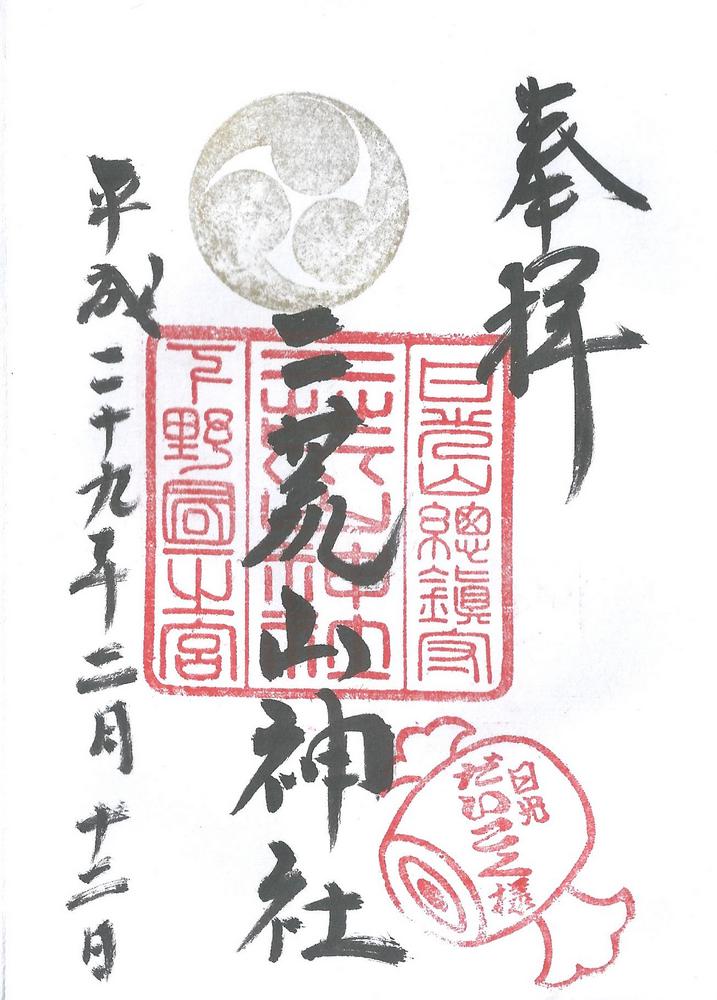 奉拝
日光山總鎭守
二荒山神社
下野國一之宮
二荒山神社
平成二十九年二月十二日
日光
だいこく様